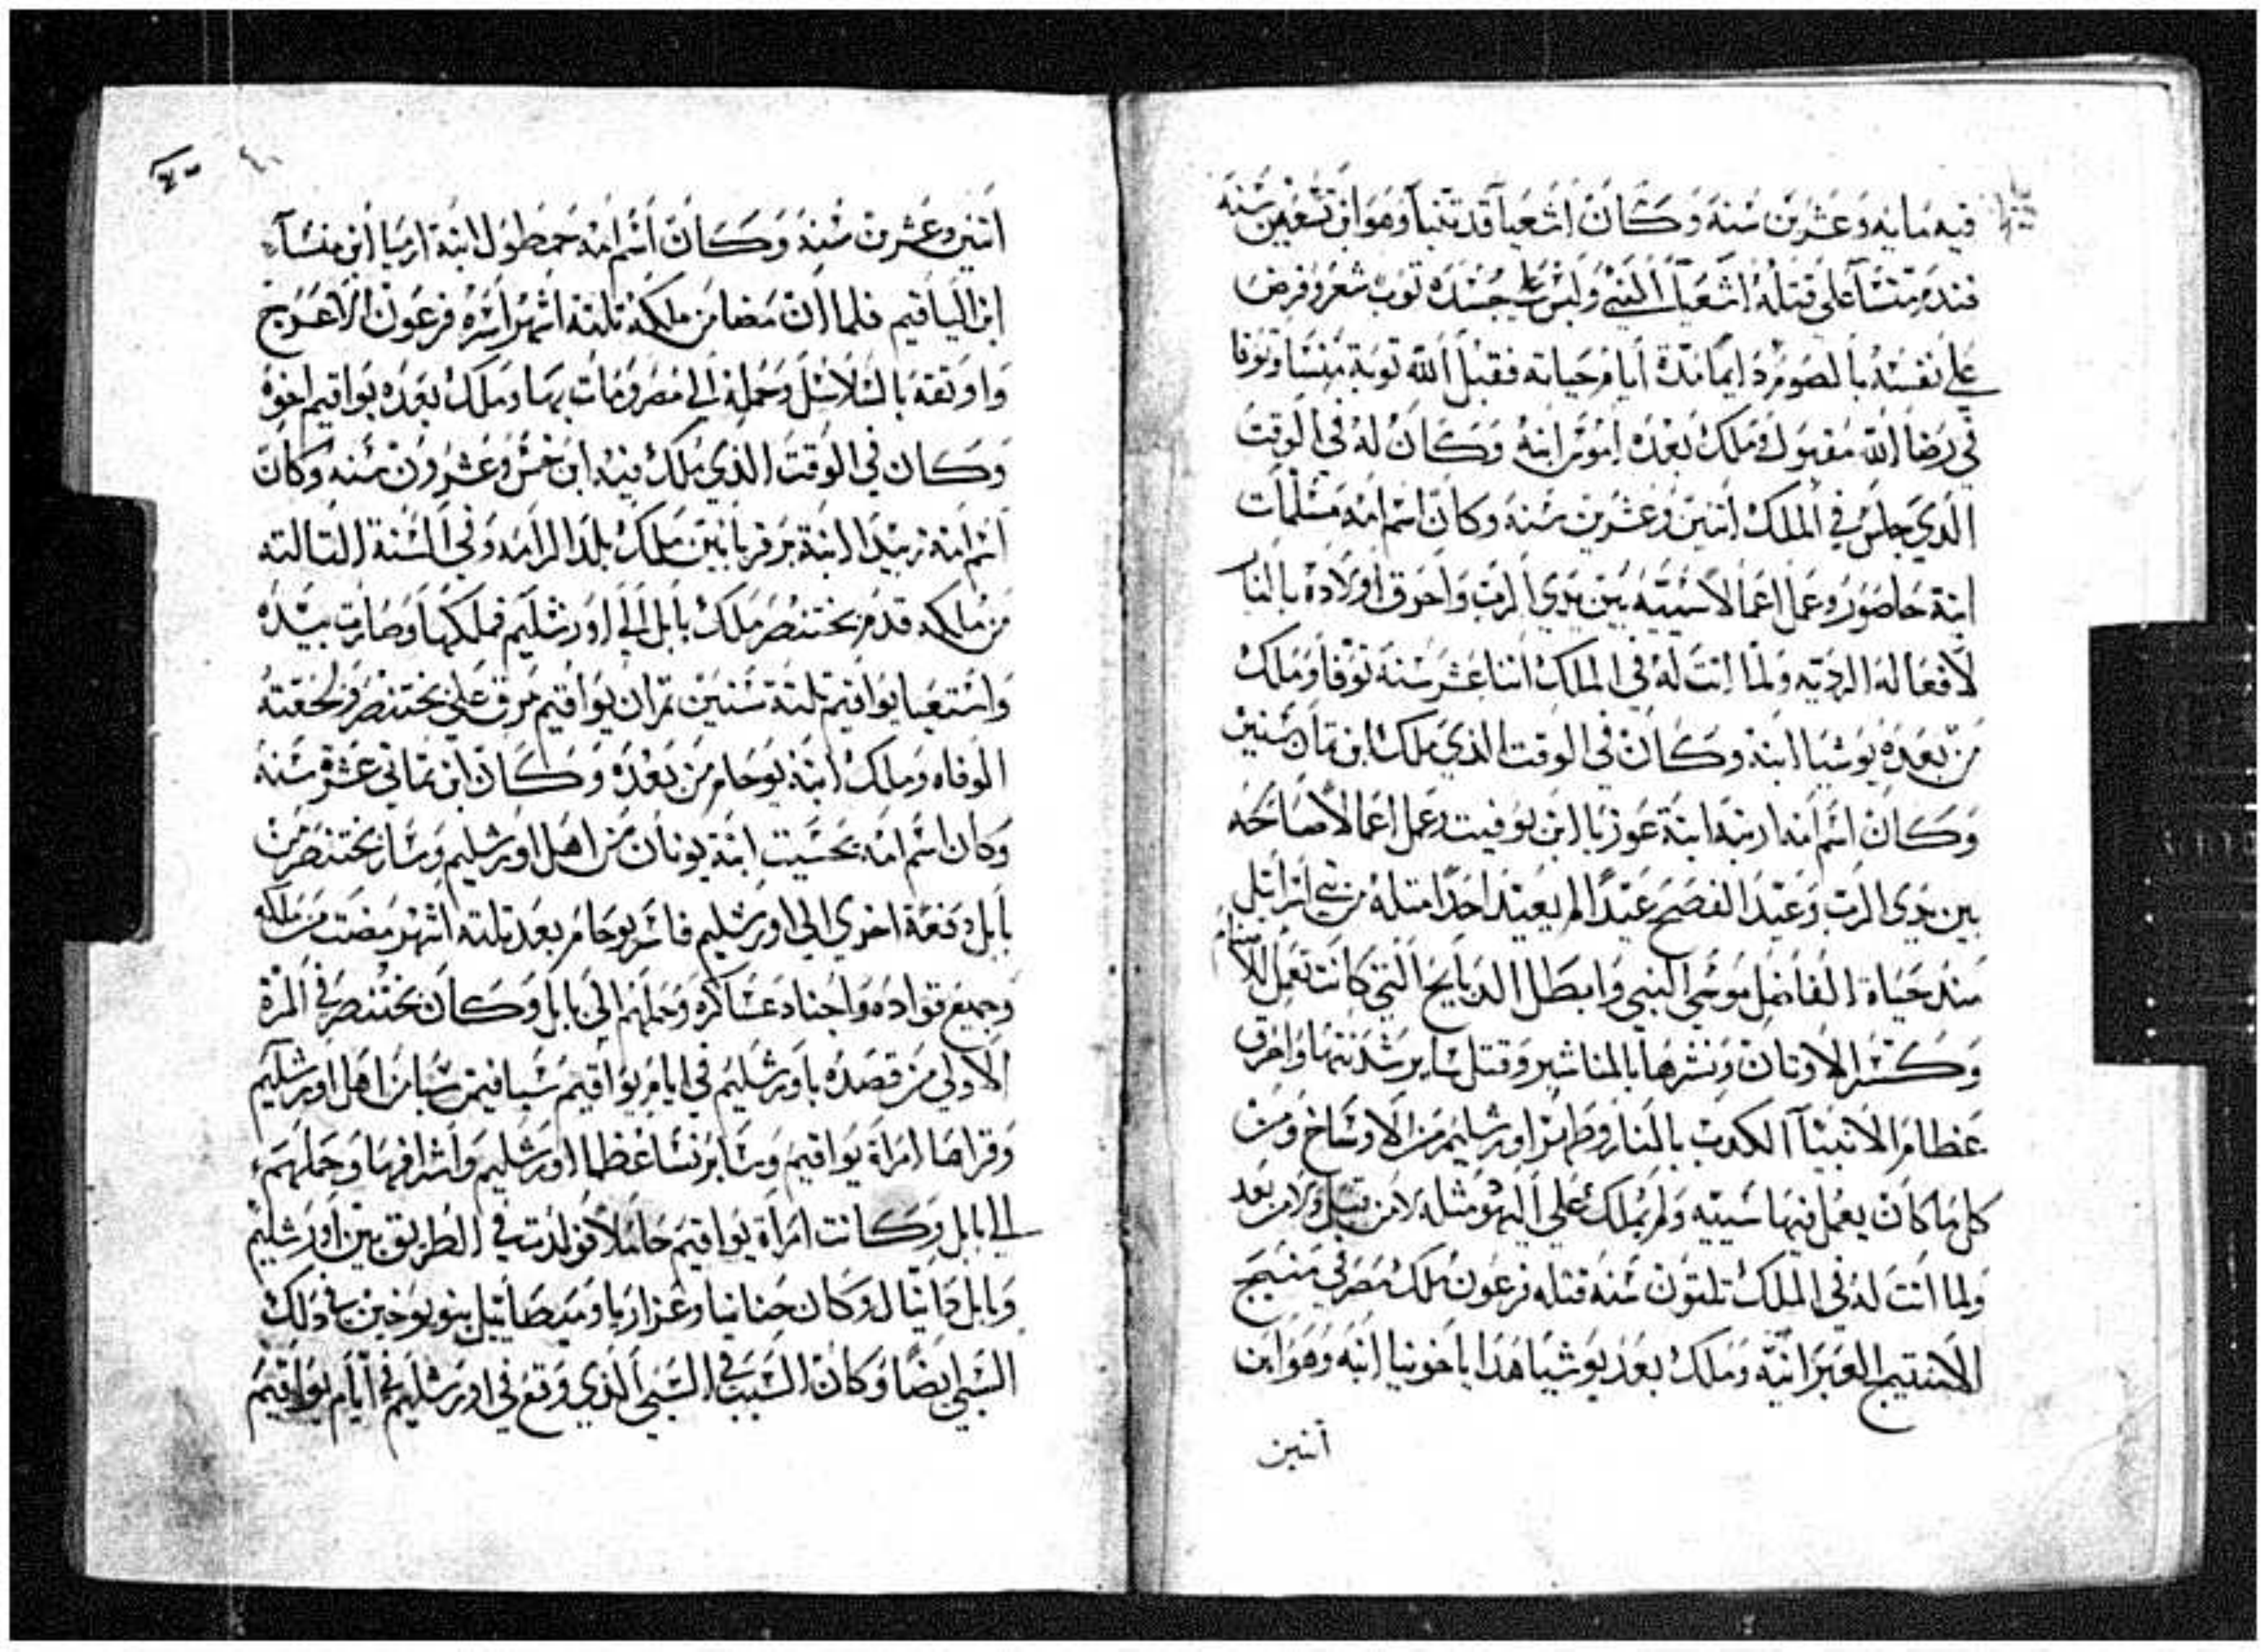 فيه مايه وعشرين سنه وكان اشعيا قد تنبا وهو ابن تسعين سنه
فندم منسا على قتله اشعيا النبي ولبس على جسده توب شعر وفرض
على نفسه بالصوم دايما مدة ايام حياته فقبل الله توبة منسا وتوفا
في رضا الله مقبول وملك بعده اموس ابنه وكان له في الوقت
الذي جلس في الملك اتنين وعشرين سنه وكان اسم امه مسلمات
ابنة حاصور وعمل اعمالا سييه بين يدي الرب واحرق اولاده بالنار
لافعاله الرديه ولما اتت له في الملك اتنا عشر سنه توفا وملك
من بعده يوشيا ابنه وكان في الوقت الذي ملك ابن تمان سنين
وكان اسم امه ارنبه ابنة عوزيا ابن يوفيت وعمل اعمالا صالحه
بين يدي الرب وعيد الفصح عيدا لم يعيد احدا متله من بني اسرائيل
منذ حياة الفاضل موسي النبي وابطل الدبايح التي كانت تعمل للاصنام
وكسر الاوتان ونشرها بالمناشير وقتل ساير سدنتها واحرق
عظام الانبيا الكدبه بالنار وطهر اورشليم من الاوساخ ومن
كل ما كان يعمل فيها سييه ولم يملك على اليهود مثله لا من قبل ولا من بعد
ولما اتت له في الملك تلتون سنه قتله فرعون ملك مصر في منبج
الاستتيج العبرانيه وملك بعد يوشيا هذا ياخونيا ابنه وهو ابن
اتنين
اتنين وعشرين سنه وكان اسم امه حمطول ابنة ارميا ابن منسا
ابن الياقيم فلما ان مضا من ملكه تلتة اشهر اسره فرعون الاعرج
واوتقه بالسلاسل وحمله الي مصر ومات بها وملك بعده يواقيم اخوه
وكان في الوقت الذي ملك فيه ابن خمس وعشرون سنه وكان
اسم امه زبيدا ابنة برفربانين ملك بلد الرامه وفي السنة التالته
من ملكه قدم بختنصر ملك بابل الي اورشليم فملكها وصارت بيده
واستعبد يواقيم تلتة سنين تم ان يواقيم مرق علي بختنصر ولحقته
الوفاه وملك ابنه يوحام من بعده وكان ابن تماني عشرة سنه
وكان اسم امه بحسيت ابنة يوناان من اهل اورشليم وسار بختنصر من
بابل دفعة اخري الي اورشليم فاسر يوحام بعد تلتة اشهر مضت من ملكه
وجميع قواده واجناد عساكره وحملهم الي بابل وكان بختنصر في المرة
الاولي من قصده باورشليم في ايام يواقيم سبا فيمن سبا من اهل اورشليم
وقراها امراة يواقيم وساير نسا عظما اورشليم واشرافها وحملهم
الي بابل وكانت امراة يواقيم حاملا فولدت في الطريق بين اورشليم
وبابل دانيال وكان حنانيا وعزاريا وميصاييل بنو يوخين في ذلك
السبي ايضا وكان السبب في السبي الذي وقع في اورشليم في ايام يواقيم